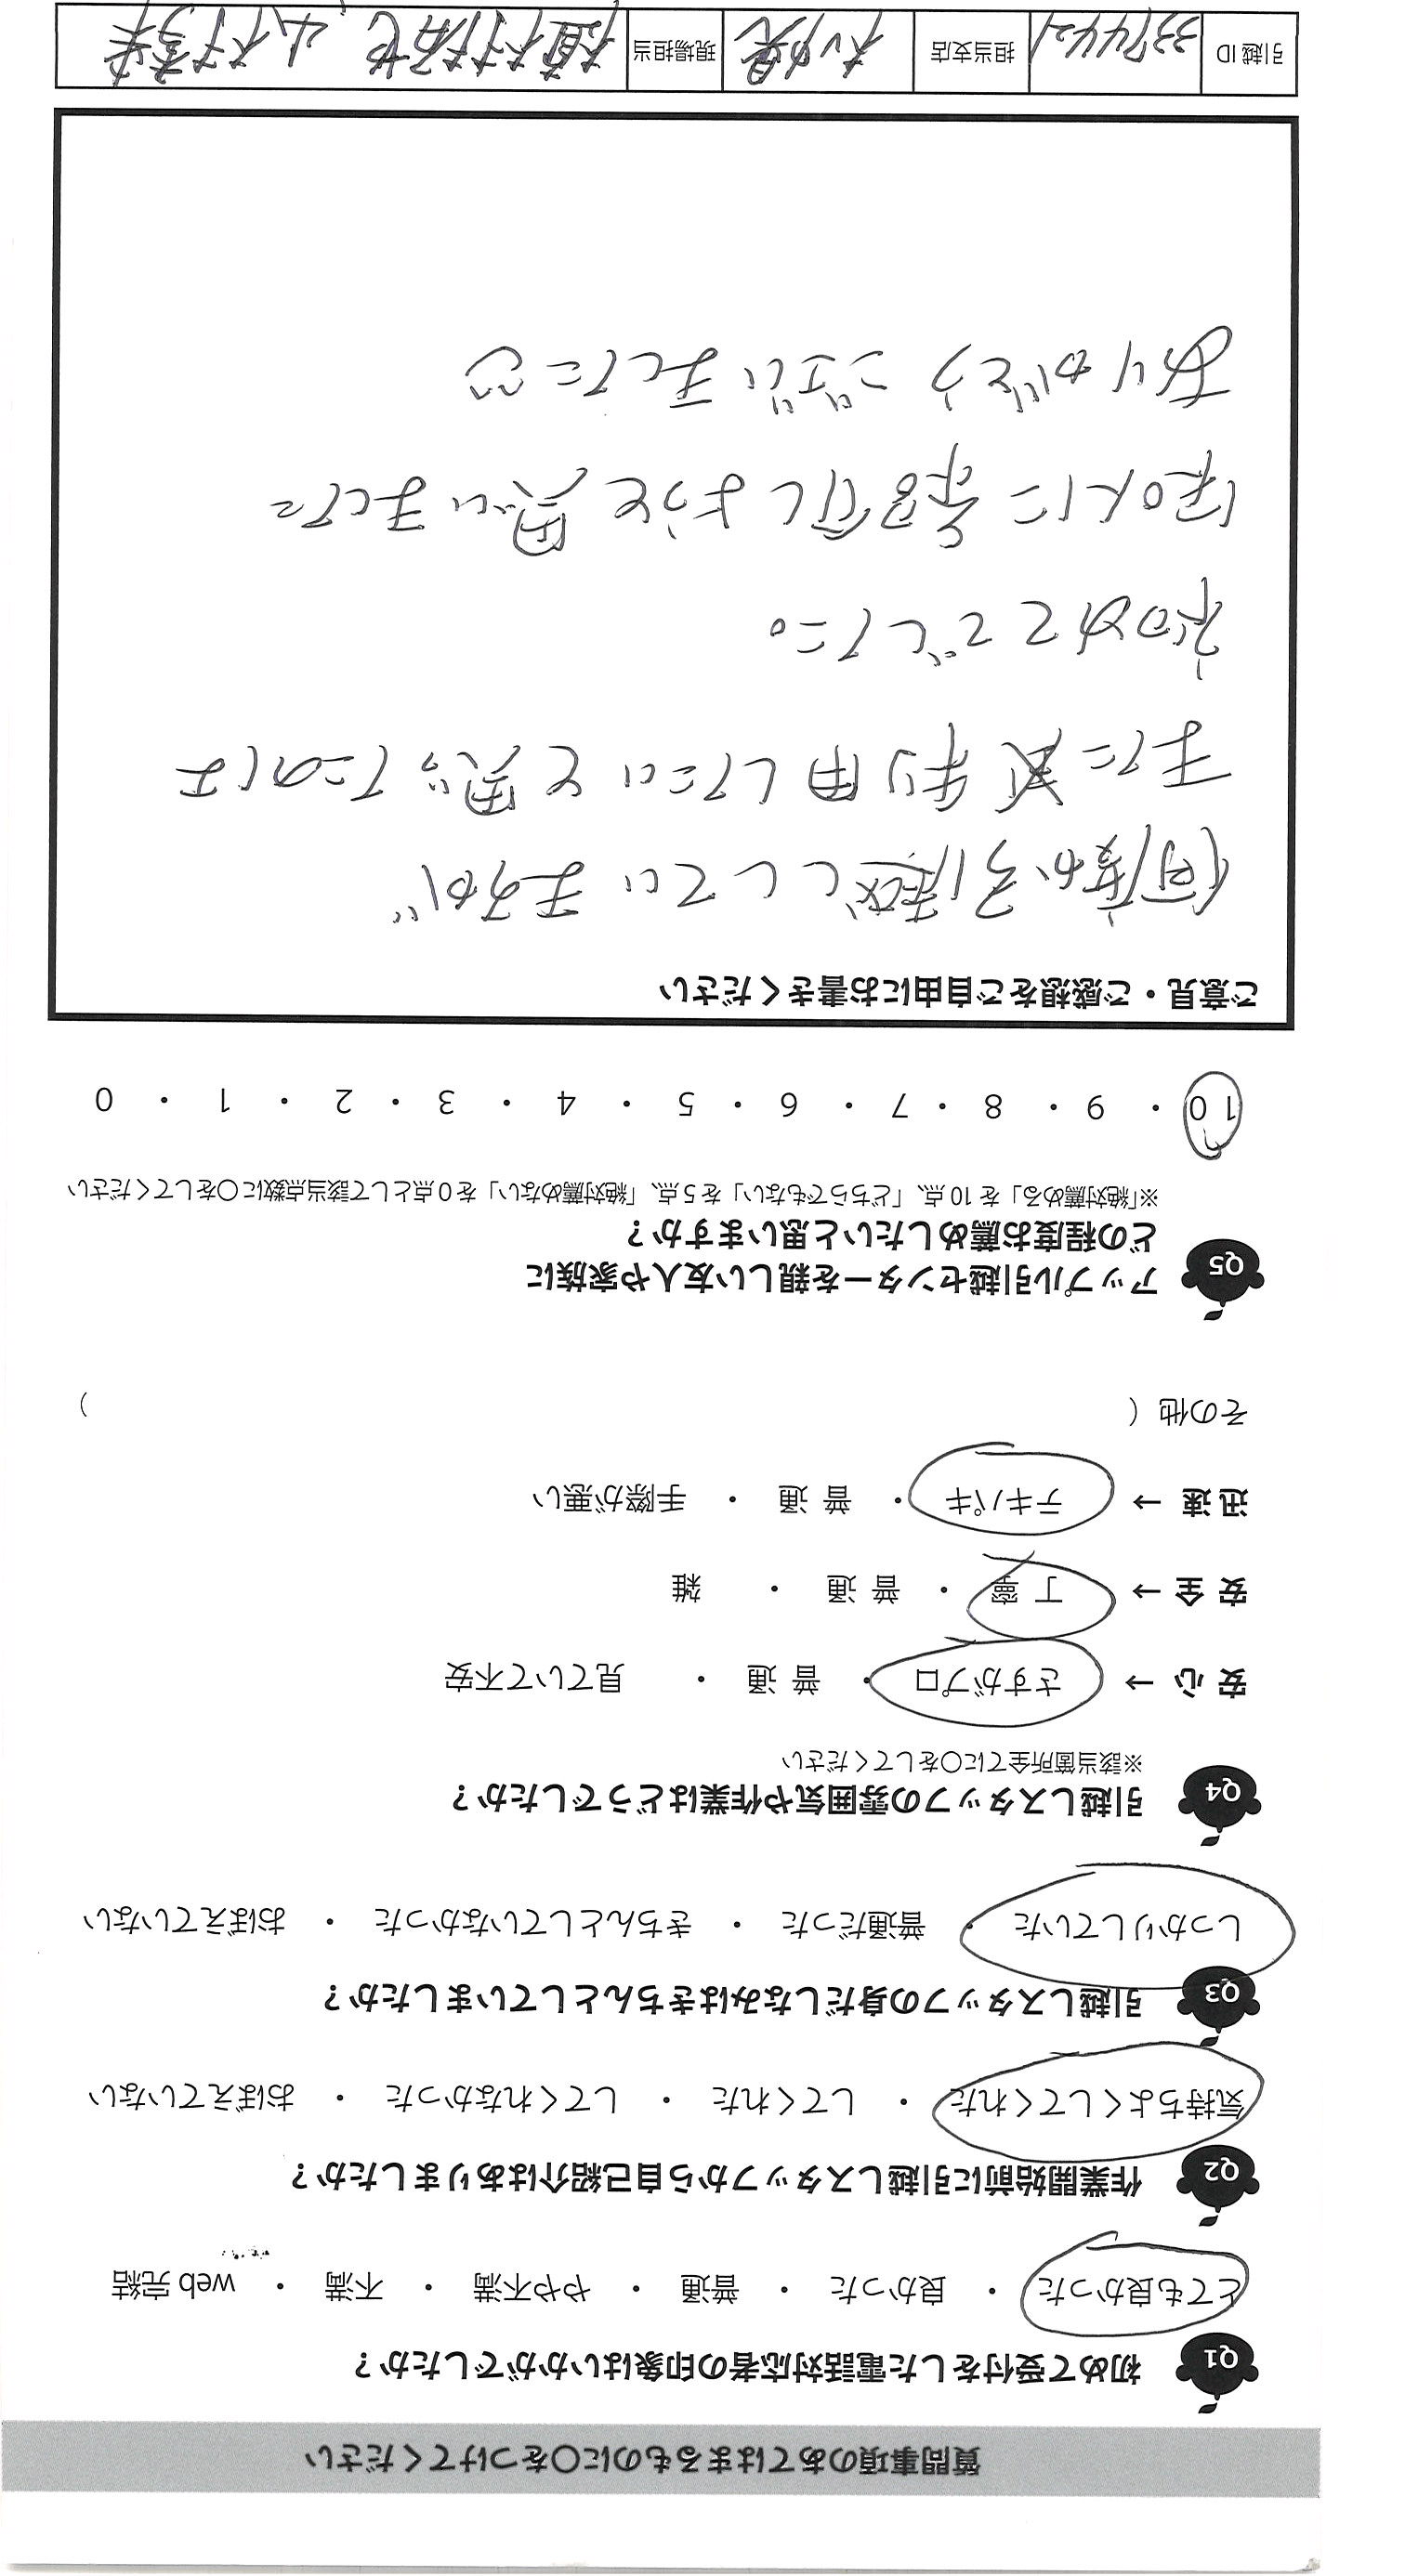 質問事項のあてはまるものに○をつけてください
Q1 初めて受付をした電話対応者の印象はいかがでしたか？
とても良かった ・ 良かった ・ 普通 ・ やや不満 ・ 不満 ・ web完結
Q2 作業開始前に引越しスタッフから自己紹介はありましたか？
気持ちよくしてくれた ・ してくれた ・ してくれなかった ・ おぼえていない
Q3 引越しスタッフの身だしなみはきちんとしていましたか？
しっかりしていた ・ 普通だった ・ きちんとしていなかった ・ おぼえていない
Q4 引越しスタッフの雰囲気や作業はどうでしたか？
※該当箇所全てに○をしてください
安心 → さすがプロ ・ 普通 ・ 見ていて不安
安全 → 丁寧 ・ 普通 ・ 雑
迅速 → テキパキ ・ 普通 ・ 手際が悪い
その他（ ）
Q5 アップル引越センターを親しい友人や家族に
どの程度お薦めしたいと思いますか？
※「絶対薦める」を10点、「どちらでもない」を5点、「絶対薦めない」を0点として該当点数に○をしてください
10 ・ 9 ・ 8 ・ 7 ・ 6 ・ 5 ・ 4 ・ 3 ・ 2 ・ 1 ・ 0
ご意見・ご感想をご自由にお書きください
何度か引越ししていますが
また利用したいと思ったのは
初めてでした。
ほんに紹介しようと思いました
ありがとうございました
引越ID 3374421 担当支店 現場担当